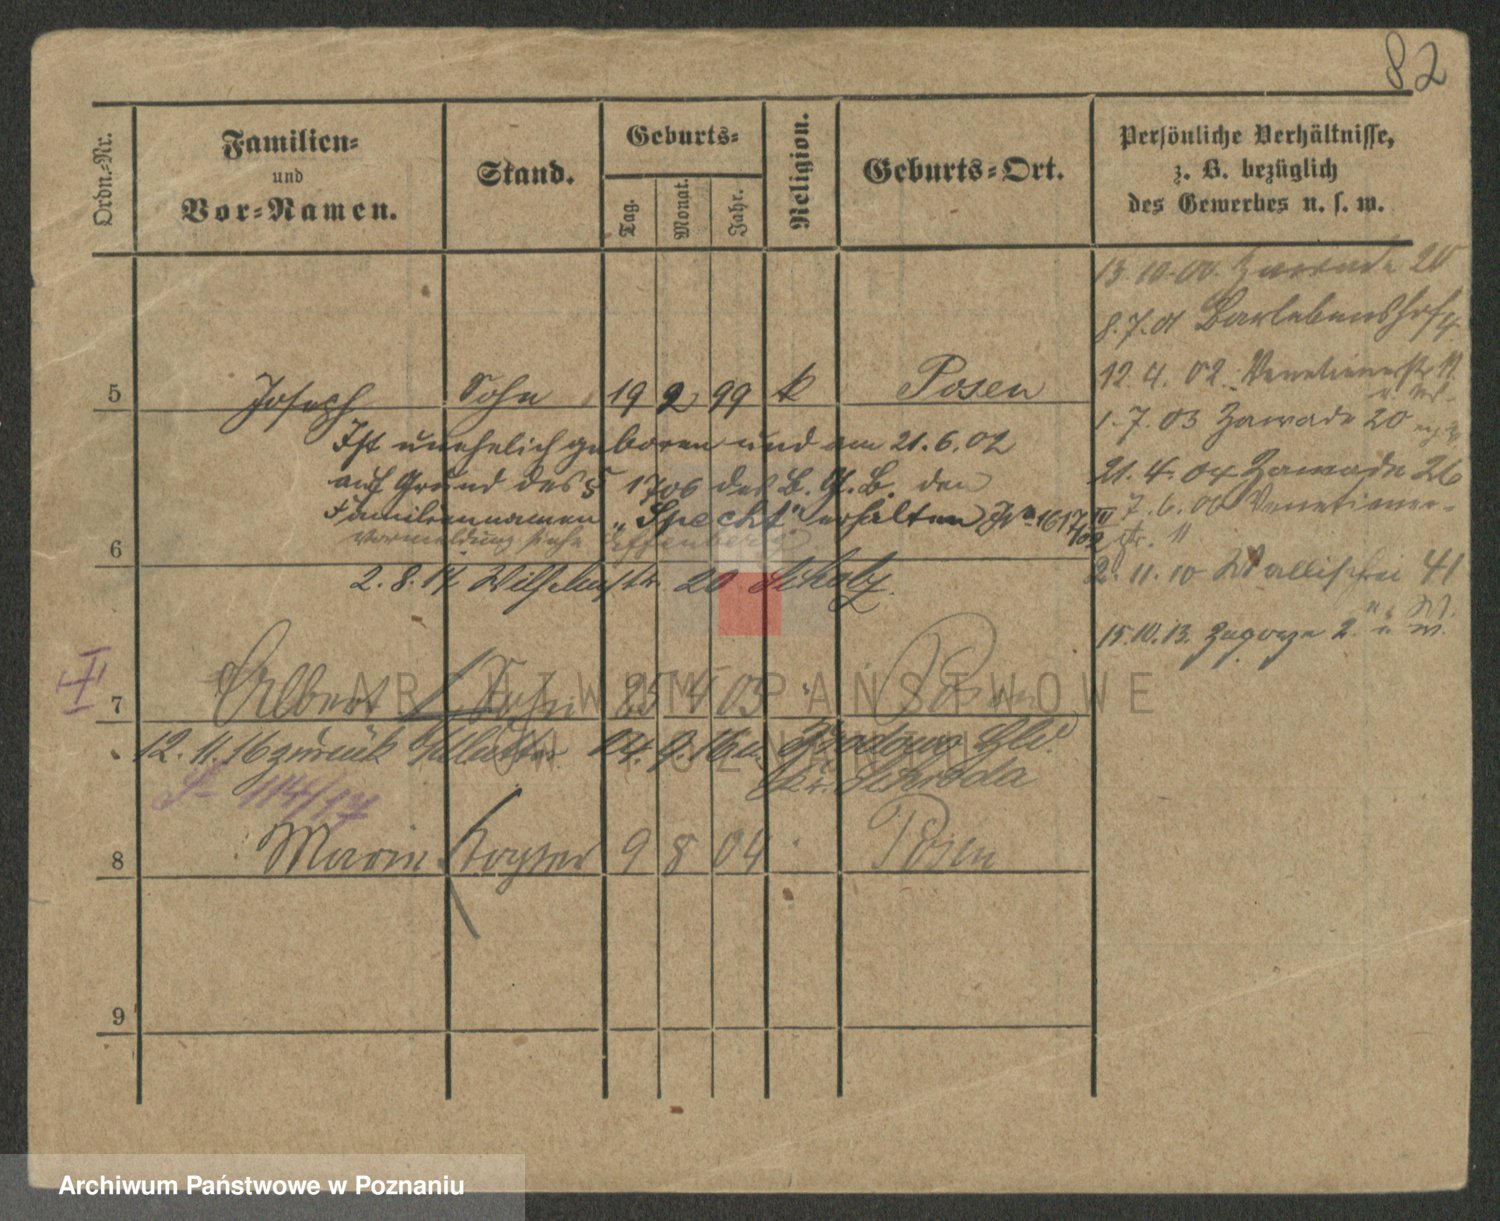 82
Ordn.-Nr.
Familien-
und
Vor-Namen.
Stand.
Geburts-
Tag.
Monat.
Jahr.
Religion.
Geburts-Ort.
Persönliche Verhältnisse,
z. B. bezüglich
des Gewerbes u. s. w.
13.10.00. Zawade 20
8.7.01 Barlebenshof 4.
12.4.02. Venetianerstr. 11
1.7.03 Zawade 20
21.4.04 Zawade 26
7.6.06 Venetianer-
str. 11
2.11.10 Wallischei 41
15.10.13. Zagorze 2.
5 Joseph Sohn 19 2 99 k Posen
Ist unehelich geboren und am 21.6.02
auf Grund des § 1706 des B. G. B. den
Familiennamen "Specht" erhalten
Vormeldung siehe Effenberg
6
2.8.14 Wilhelmstr. 20 Scholz.
I
7 Albert Sohn 25 4 03 Posen
12.11.16 zurück 14.9.16
Kr. Schroda
114/17
8 Marie 9 8 04 Posen
9
ARCHIWUM PAŃSTWOWE
W POZNANIU
Archiwum Państwowe w Poznaniu